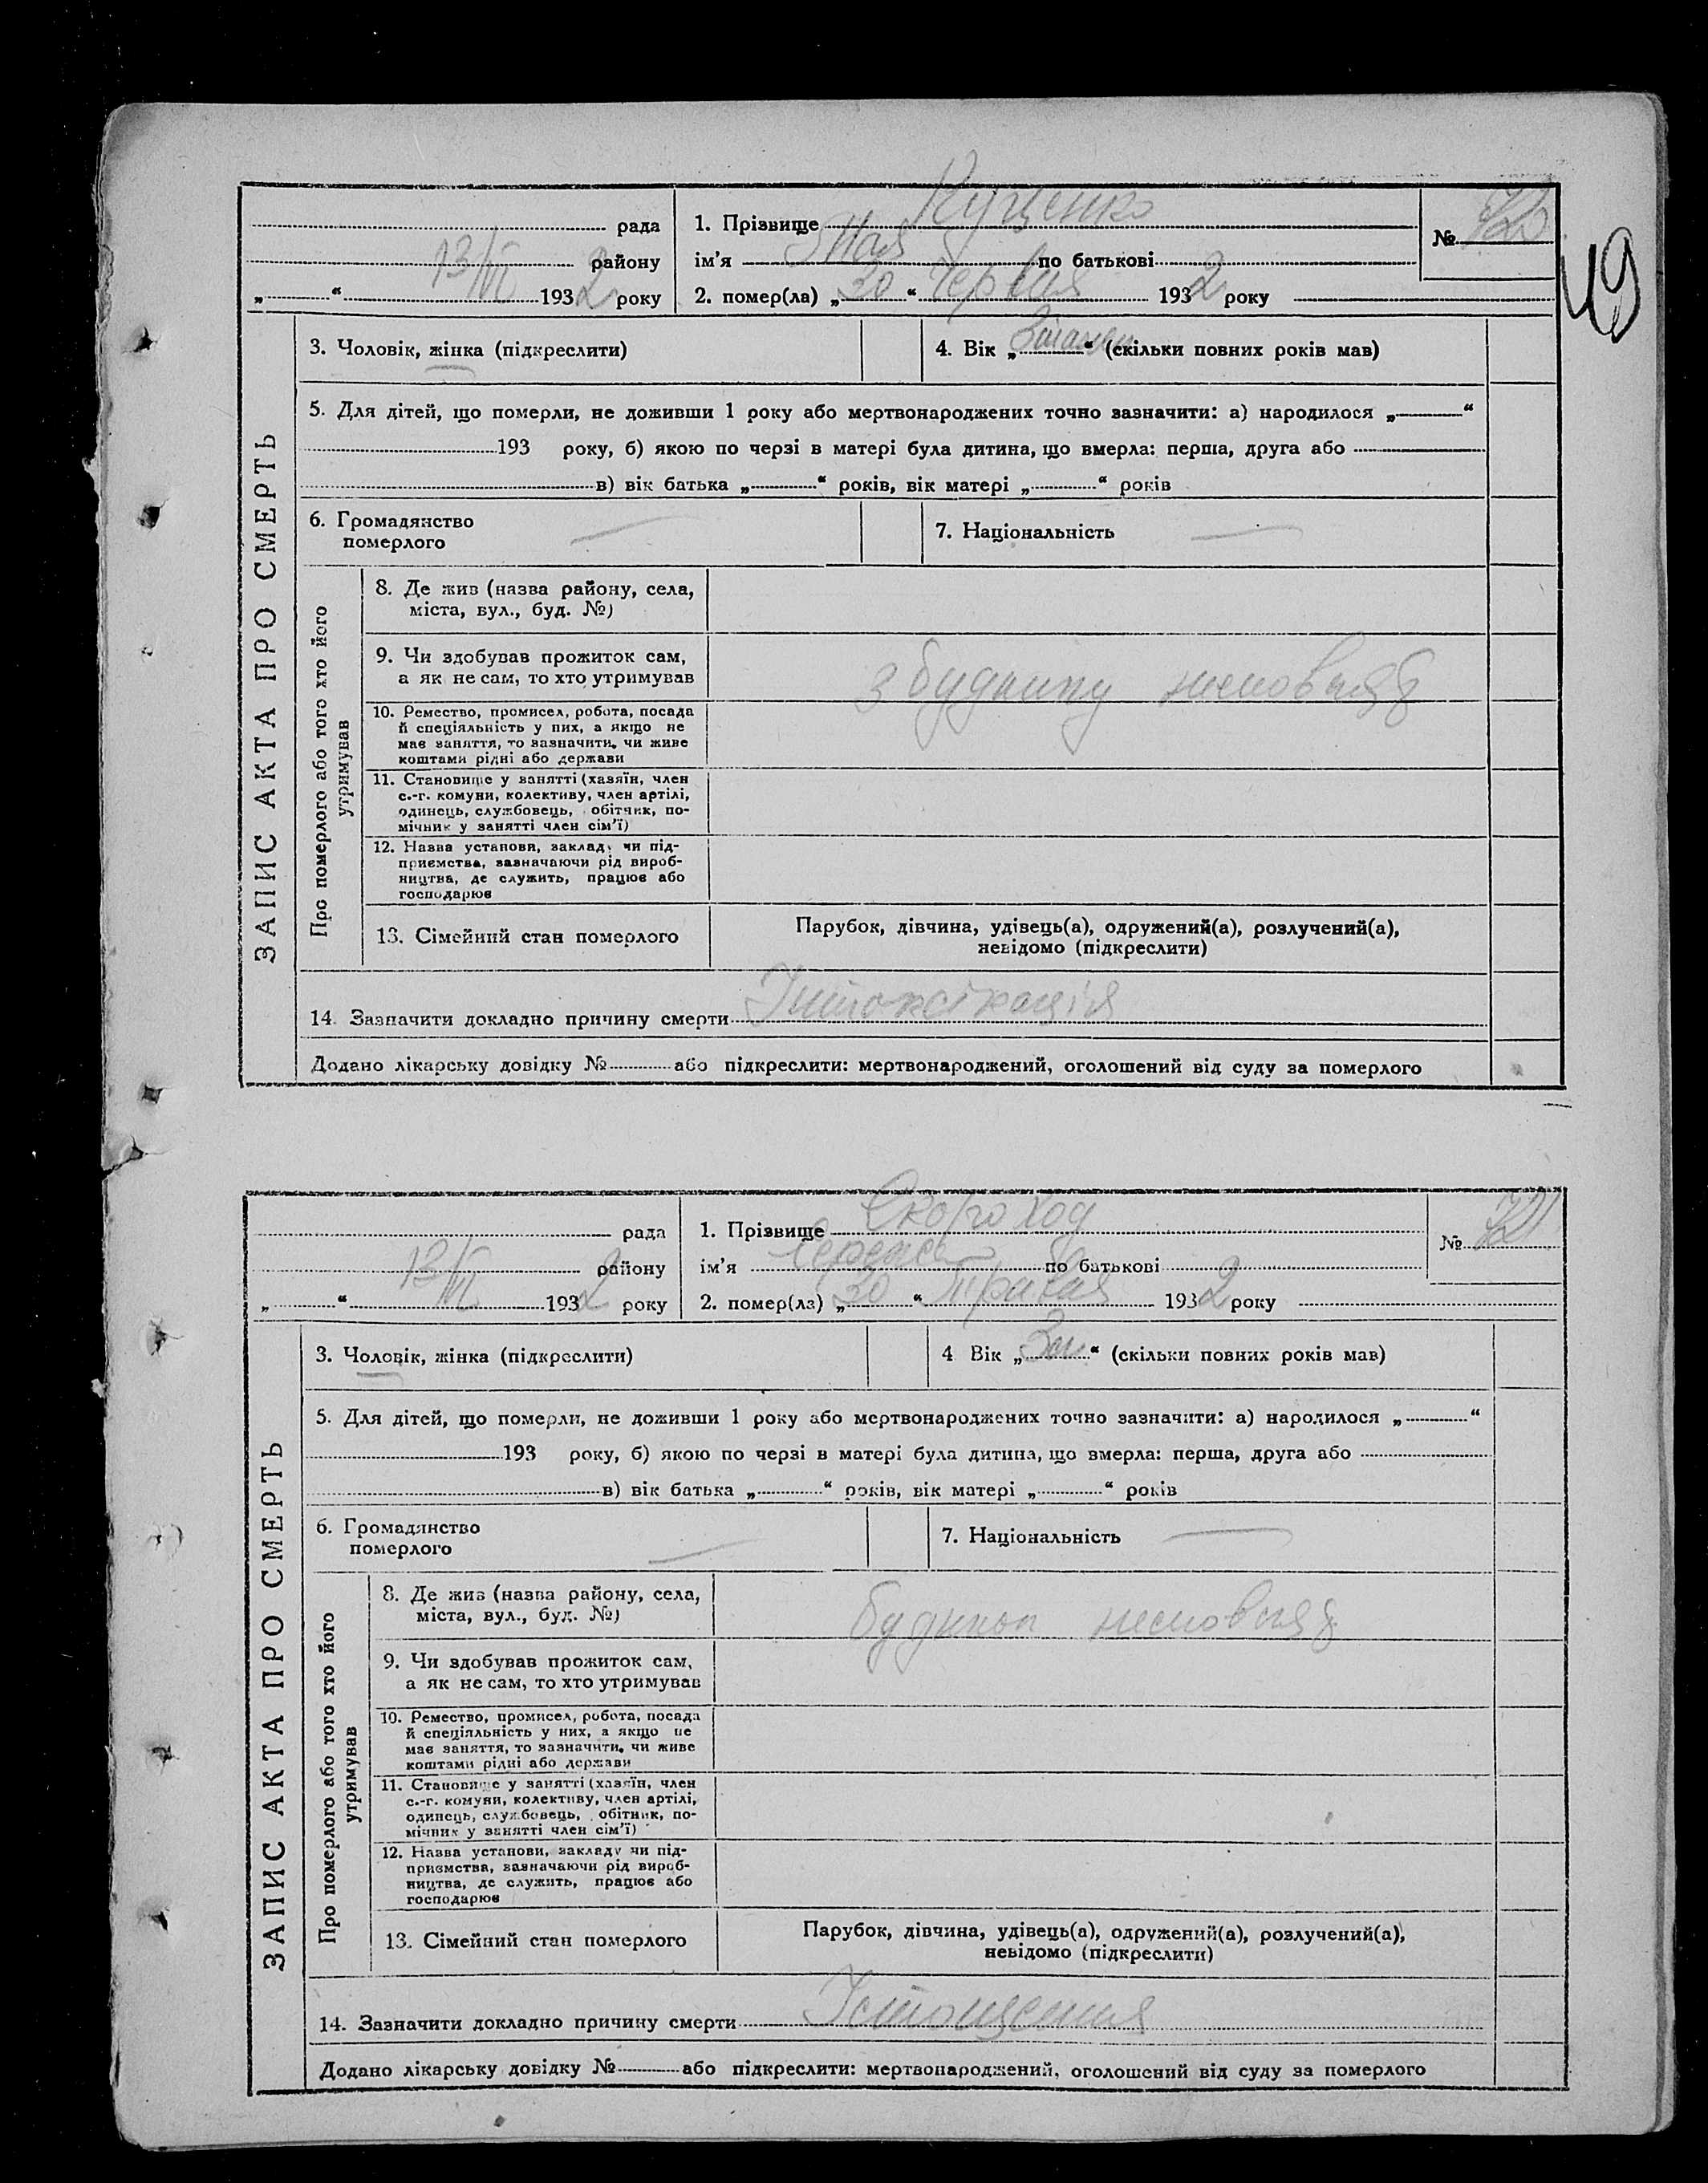 49
ЗАПИС АКТА ПРО СМЕРТЬ
рада
району
13/VI
„ “ 1932 року
1. Прізвище Куценко
ім'я по батькові
2. помер(ла) „30“ Червня 1932 року
№
3. Чоловік, жінка (підкреслити)
4. Вік „ “ (скільки повних років мав)
5. Для дітей, що померли, не доживши 1 року або мертвонароджених точно зазначити: а) народилося „ “
193 року, б) якою по черзі в матері була дитина, що вмерла: перша, друга або
в) вік батька „ “ років, вік матері „ “ років
6. Громадянство
померлого —
7. Національність —
Про померлого або того хто його
утримував
8. Де жив (назва району, села,
міста, вул., буд. №)
9. Чи здобував прожиток сам,
а як не сам, то хто утримував
з будинку немовлят
10. Ремество, промисел, робота, посада
й спеціяльність у них, а якщо не
має заняття, то зазначити, чи живе
коштами рідні або держави
11. Становище у занятті (хазяїн, член
с.-г. комуни, колективу, член артілі,
одинець, службовець, обітчик, по-
мічник у занятті член сім'ї)
12. Назва установи, закладу чи під-
приємства, зазначаючи рід вироб-
ництва, де служить, працює або
господарює
13. Сімейний стан померлого
Парубок, дівчина, удівець(а), одружений(а), розлучений(а),
невідомо (підкреслити)
14. Зазначити докладно причину смерти Інтоксікація
Додано лікарську довідку № або підкреслити: мертвонароджений, оголошений від суду за померлого
ЗАПИС АКТА ПРО СМЕРТЬ
рада
району
13/VI
„ “ 1932 року
1. Прізвище Скороход
ім'я по батькові
2. помер(ла) „30“ Травня 1932 року
№
3. Чоловік, жінка (підкреслити)
4 Вік „3м“ (скільки повних років мав)
5. Для дітей, що померли, не доживши 1 року або мертвонароджених точно зазначити: а) народилося „ “
193 року, б) якою по черзі в матері була дитина, що вмерла: перша, друга або
в) вік батька „ “ років, вік матері „ “ років
6. Громадянство
померлого —
7. Національність —
Про померлого або того хто його
утримував
8. Де жив (назва району, села,
міста, вул., буд. №)
будинок немовлят
9. Чи здобував прожиток сам,
а як не сам, то хто утримував
10. Ремество, промисел, робота, посада
й спеціяльність у них, а якщо не
має заняття, то зазначити, чи живе
коштами рідні або держави
11. Становище у занятті (хазяїн, член
с.-г. комуни, колективу, член артілі,
одинець, службовець, обітник, по-
мічник у занятті член сім'ї)
12. Назва установи, закладу чи під-
приємства, зазначаючи рід вироб-
ництва, де служить, працює або
господарює
13. Сімейний стан померлого
Парубок, дівчина, удівець(а), одружений(а), розлучений(а),
невідомо (підкреслити)
14. Зазначити докладно причину смерти Істощения
Додано лікарську довідку № або підкреслити: мертвонароджений, оголошений від суду за померлого